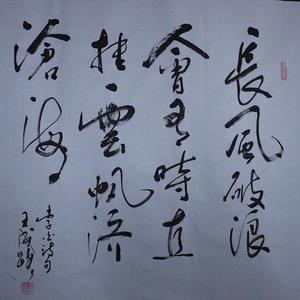 長風破浪
會有時直
挂雲帆济
滄海
李白詩句